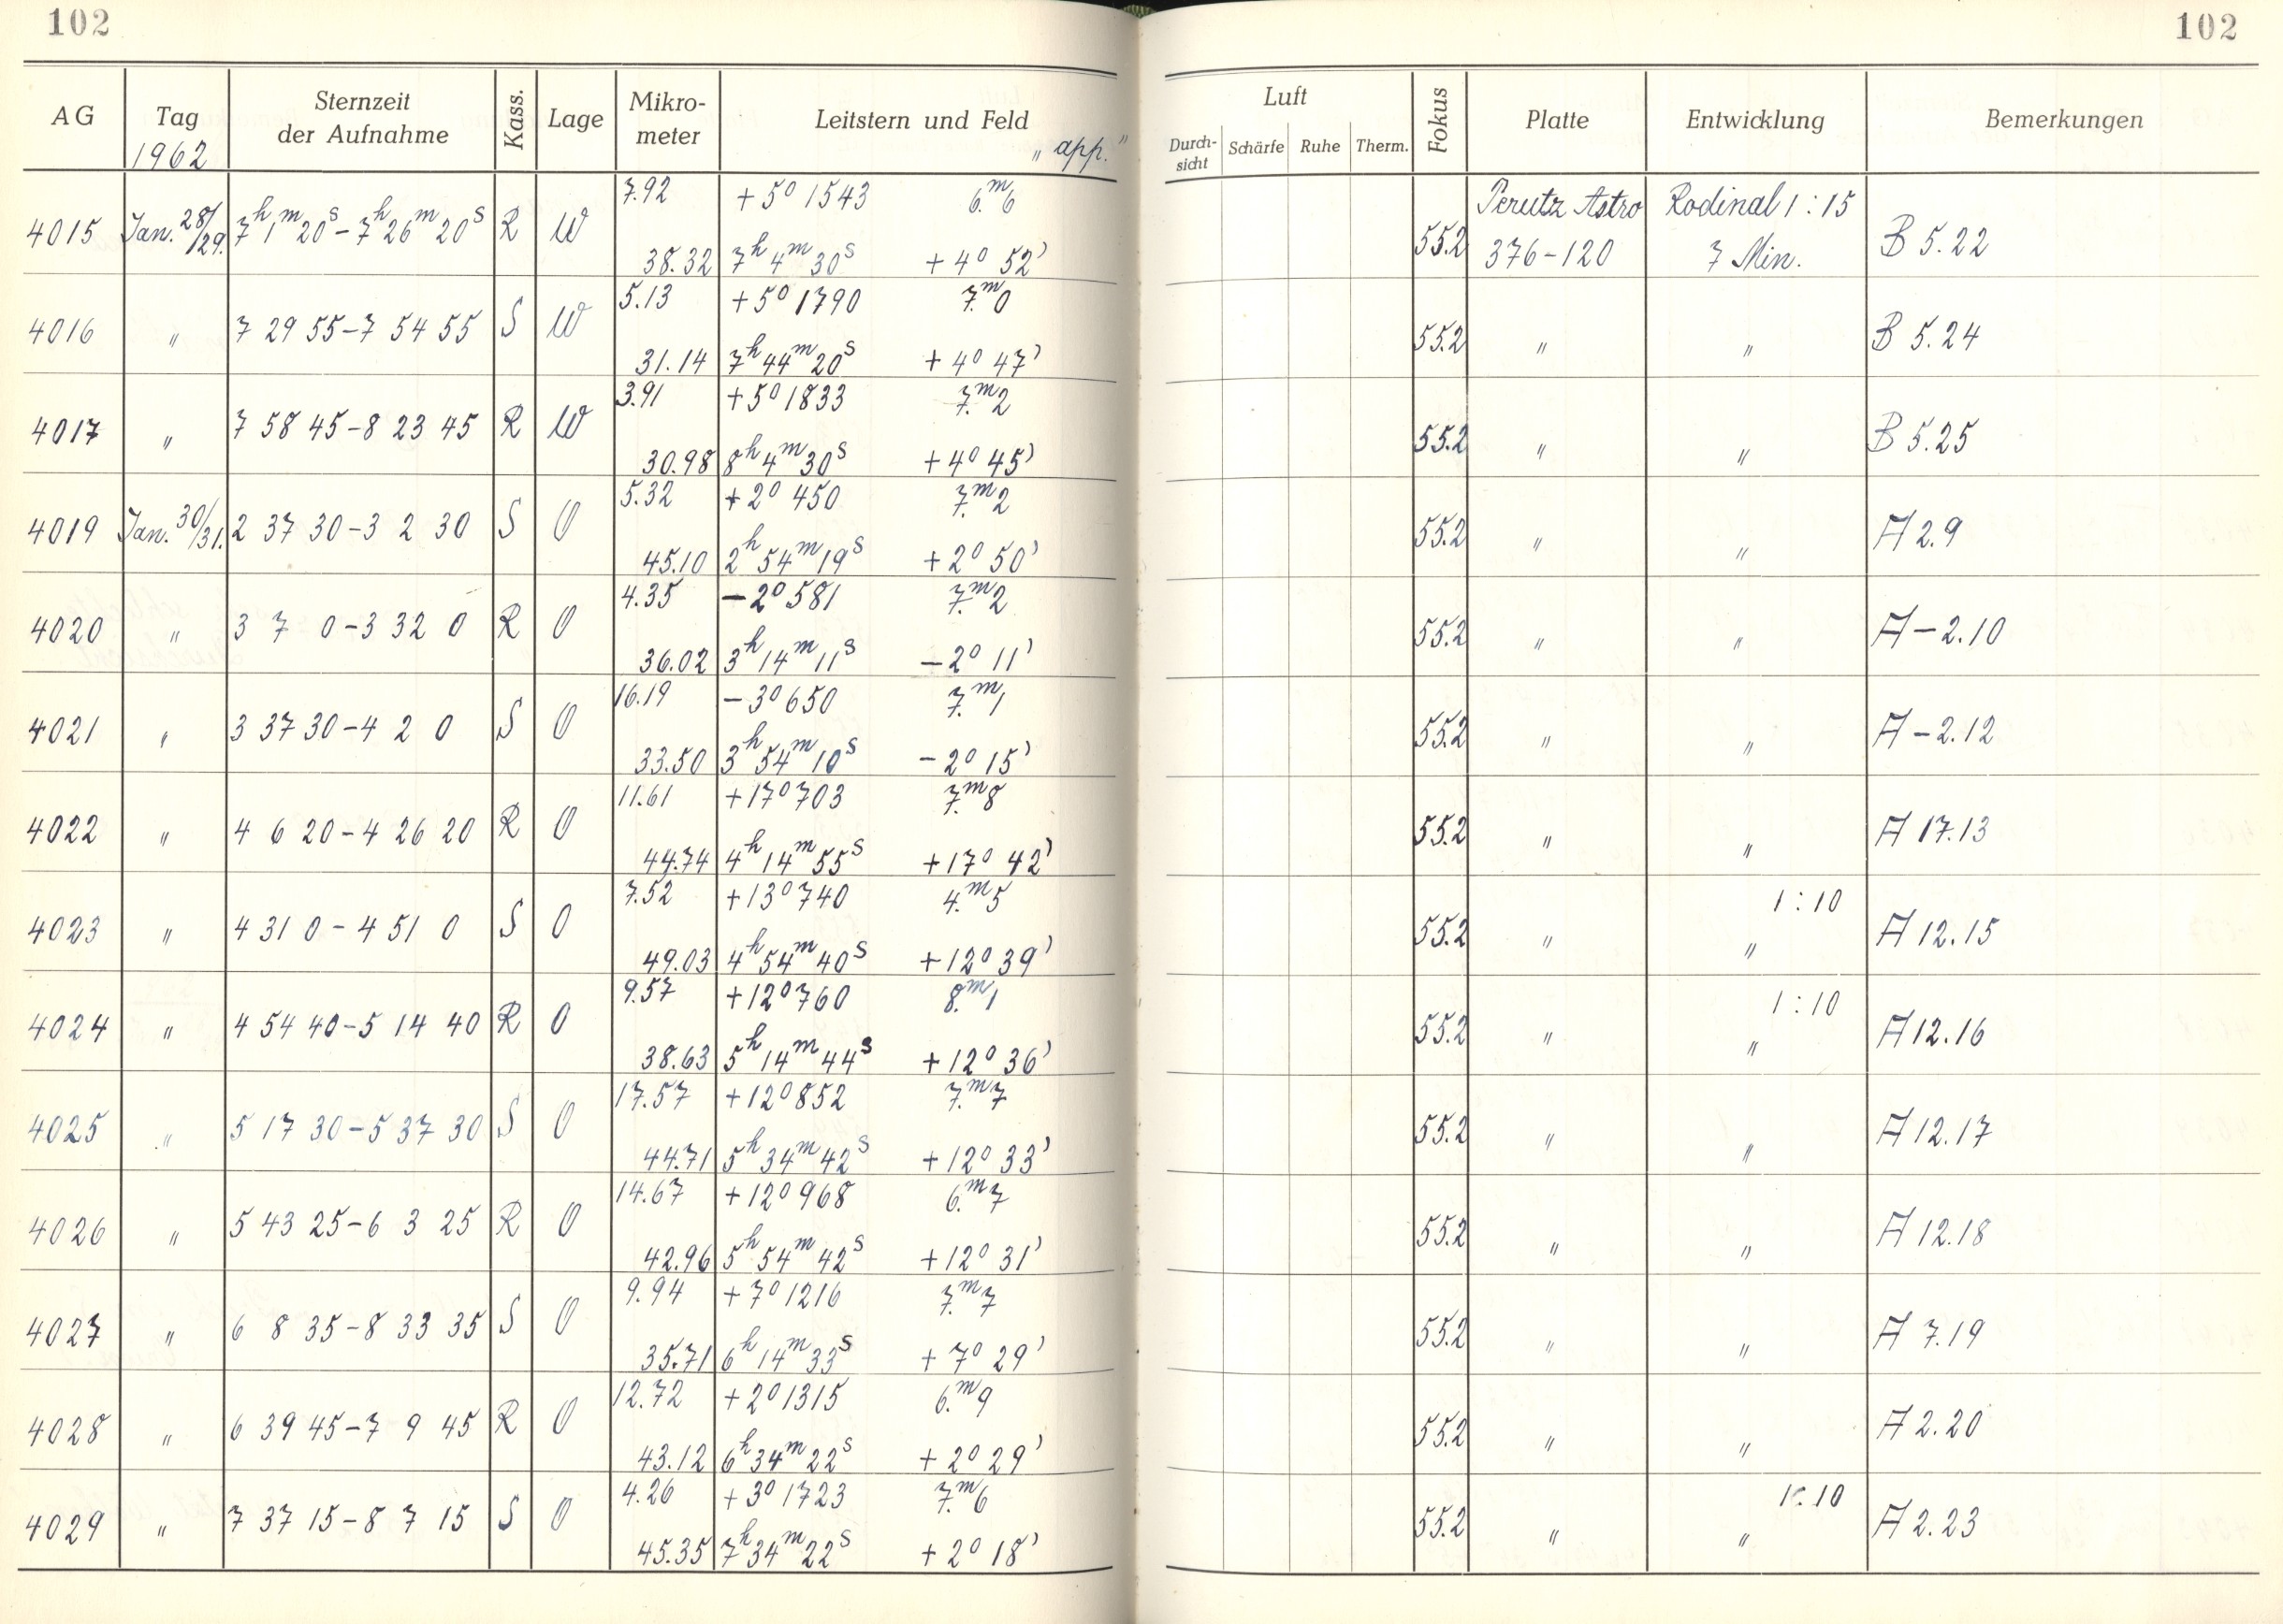 102 102
AG Tag 1962 Sternzeit der Aufnahme Kass. Lage Mikro-meter Leitstern und Feld "app." Luft Durch-sicht Schärfe Ruhe Therm. Fokus Platte Entwicklung Bemerkungen
7.92 +5° 1543 6.ᵐ6 Perutz Astro Rodinal 1:15
4015 Jan. 28/29. 7ʰ 1ᵐ 20ˢ – 7ʰ 26ᵐ 20ˢ R W 55.2 376–120 7 Min. B 5.22
38.32 7ʰ 4ᵐ 30ˢ +4° 52'
5.13 +5° 1790 7.ᵐ0
4016 " 7 29 55–7 54 55 S W 55.2 " " B 5.24
31.14 7ʰ 44ᵐ 20ˢ +4° 47'
3.91 +5° 1833 7.ᵐ2
4017 " 7 58 45–8 23 45 R W 55.2 " " B 5.25
30.98 8ʰ 4ᵐ 30ˢ +4° 45'
5.32 +2° 450 7.ᵐ2
4019 Jan. 30/31. 2 37 30–3 2 30 S O 55.2 " " A 2.9
45.10 2ʰ 54ᵐ 19ˢ +2° 50'
4.35 –2° 581 7.ᵐ2
4020 " 3 7 0–3 32 0 R O 55.2 " " A –2.10
36.02 3ʰ 14ᵐ 11ˢ –2° 11'
16.19 –3° 650 7.ᵐ1
4021 " 3 37 30–4 2 0 S O 55.2 " " A –2.12
33.50 3ʰ 54ᵐ 10ˢ –2° 15'
11.61 +17° 703 7.ᵐ8
4022 " 4 6 20–4 26 20 R O 55.2 " " A 17.13
44.74 4ʰ 14ᵐ 55ˢ +17° 42'
7.52 +13° 740 4.ᵐ5 1:10
4023 " 4 31 0–4 51 0 S O 55.2 " " A 12.15
49.03 4ʰ 54ᵐ 40ˢ +12° 39'
9.57 +12° 760 8.ᵐ1 1:10
4024 " 4 54 40–5 14 40 R O 55.2 " " A 12.16
38.63 5ʰ 14ᵐ 44ˢ +12° 36'
17.57 +12° 852 7.ᵐ7
4025 " 5 17 30–5 37 30 S O 55.2 " " A 12.17
44.71 5ʰ 34ᵐ 42ˢ +12° 33'
14.67 +12° 968 6.ᵐ7
4026 " 5 43 25–6 3 25 R O 55.2 " " A 12.18
42.96 5ʰ 54ᵐ 42ˢ +12° 31'
9.94 +7° 1216 7.ᵐ7
4027 " 6 8 35–8 33 35 S O 55.2 " " A 7.19
35.71 6ʰ 14ᵐ 33ˢ +7° 29'
12.72 +2° 1315 6.ᵐ9
4028 " 6 39 45–7 9 45 R O 55.2 " " A 2.20
43.12 6ʰ 34ᵐ 22ˢ +2° 29'
4.26 +3° 1723 7.ᵐ6 1:10
4029 " 7 37 15–8 7 15 S O 55.2 " " A 2.23
45.35 7ʰ 34ᵐ 22ˢ +2° 18'